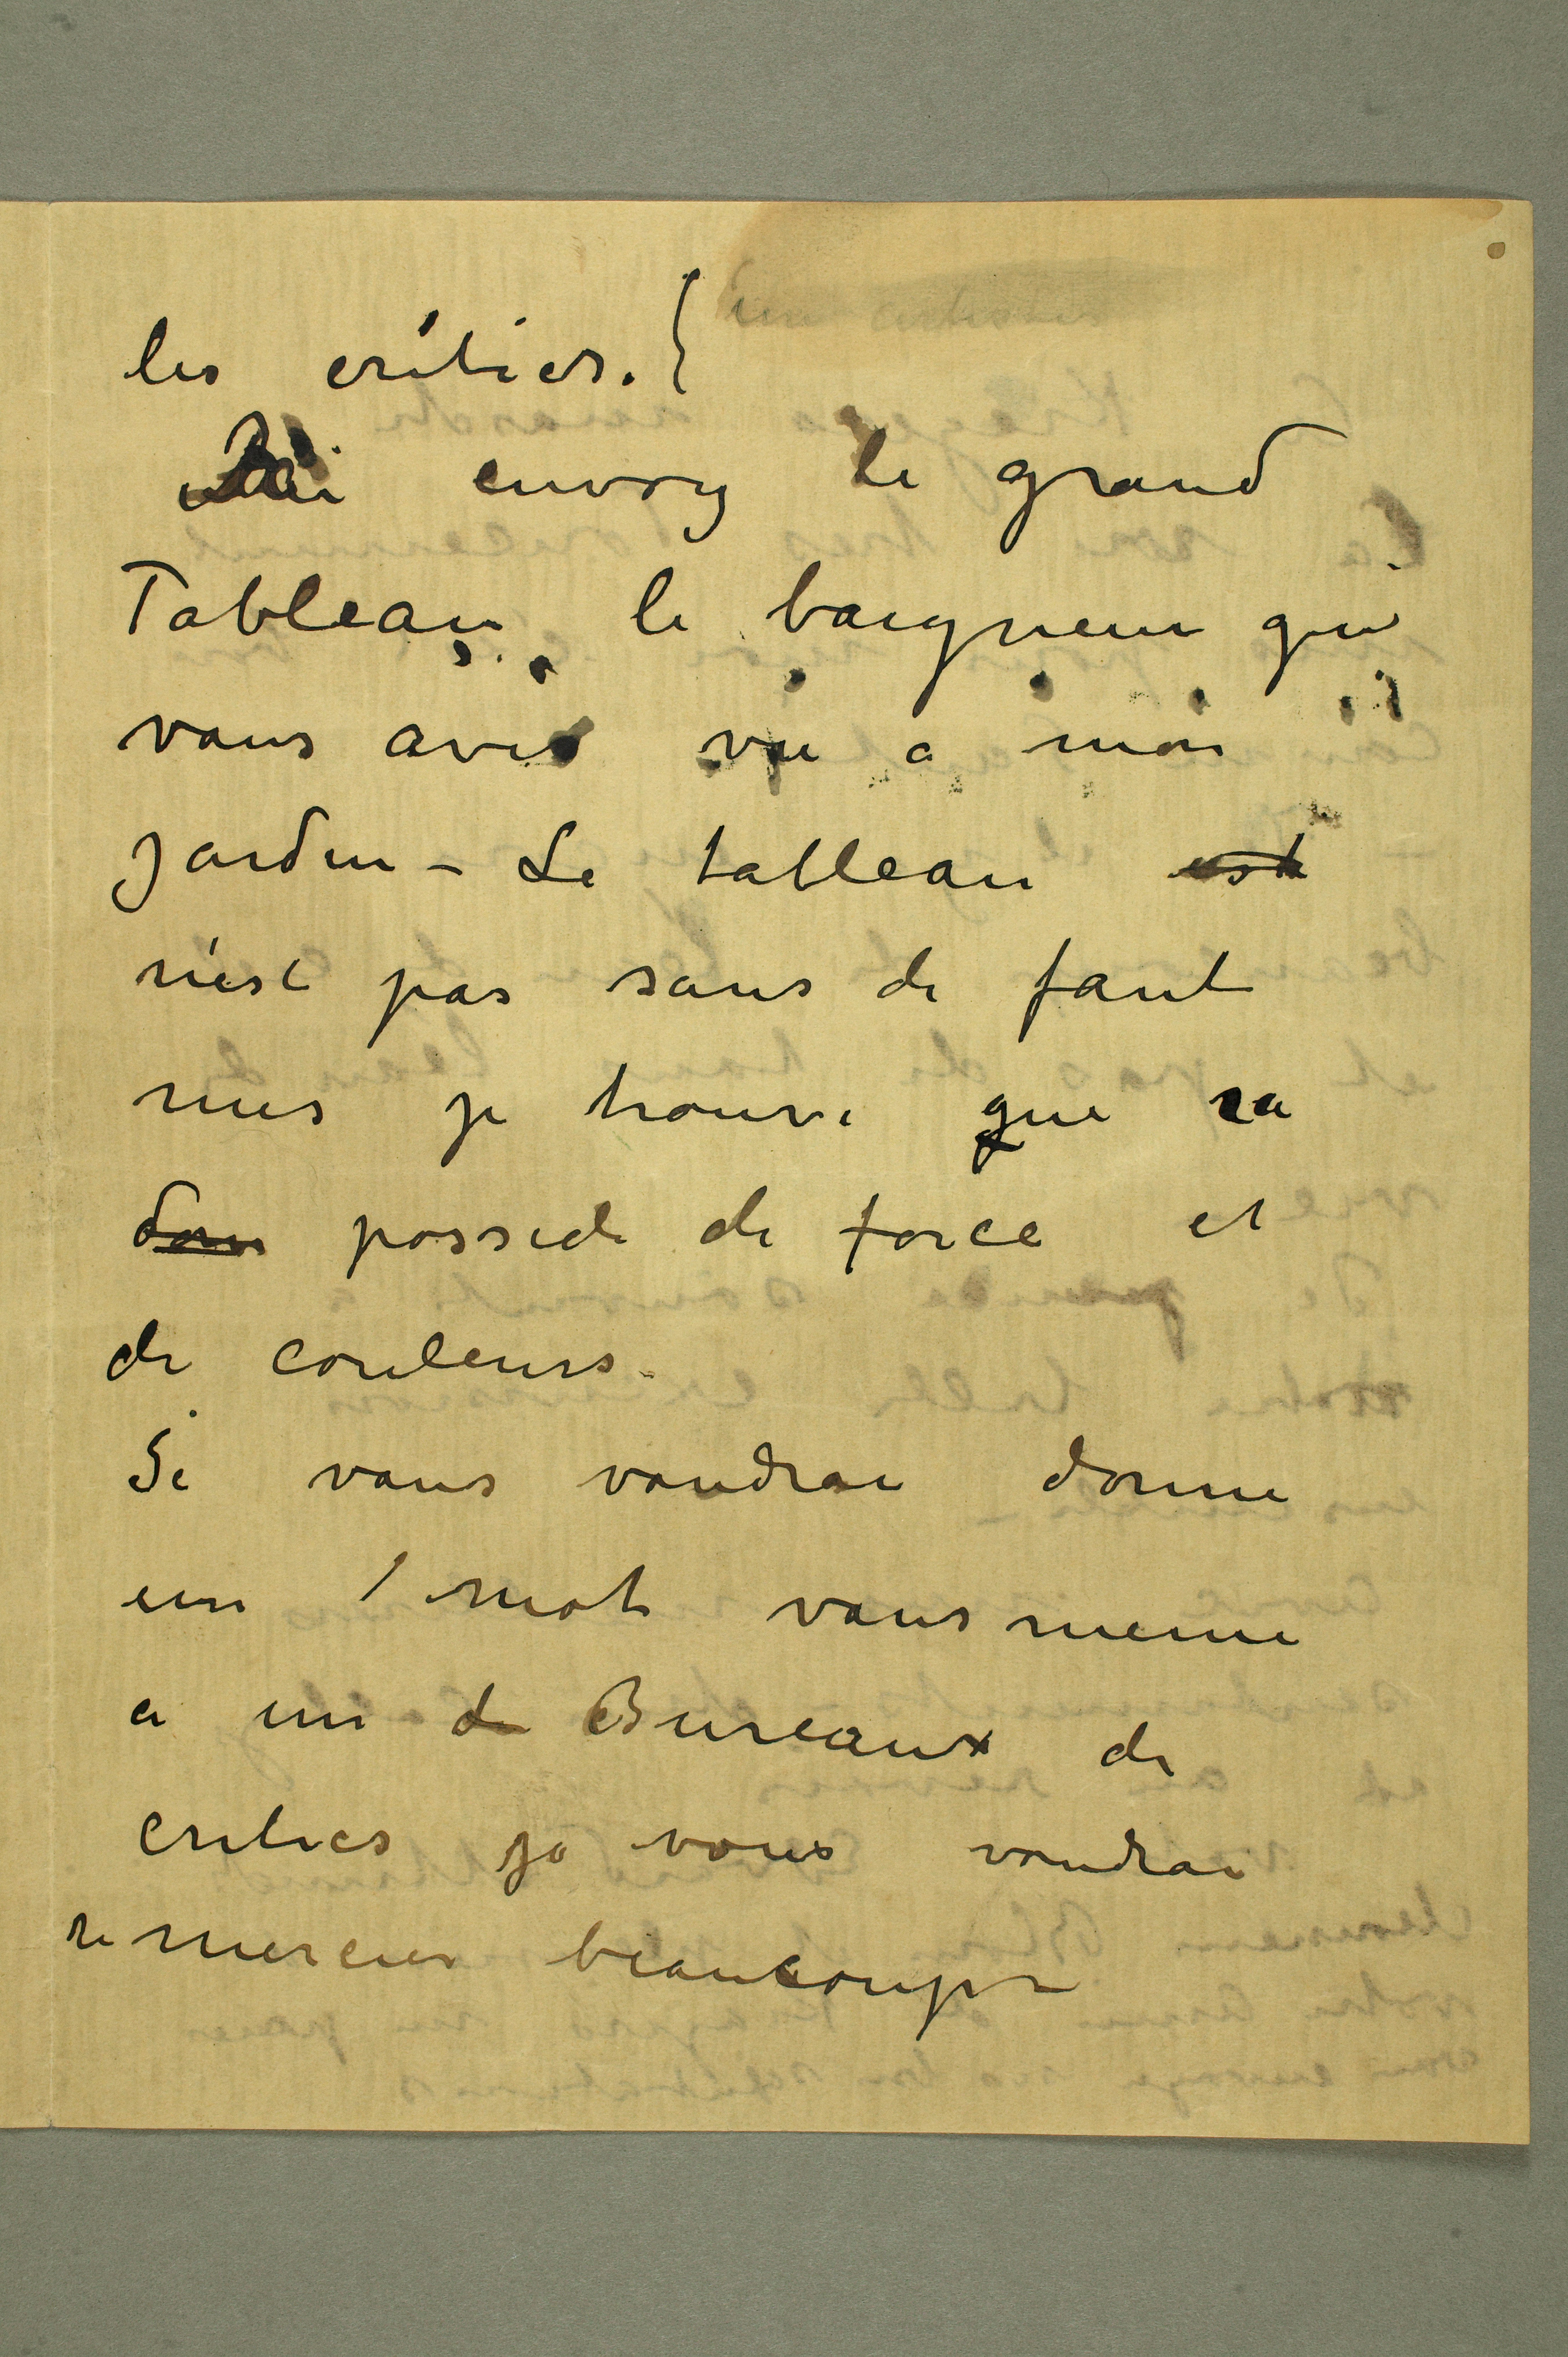 les critics. {
envoy le grand
Tableau, le baigneur qui
vous aves vu a mon
jardin – Le tableau est
n'est pas sans de faut
mes je trouve que sa
dons possede de force et
de couleurs.
Si vous voudrai donne
un 1 mot vous meme
a un de Bureaux de
critics je vous voudrai
remercier beaucoup –